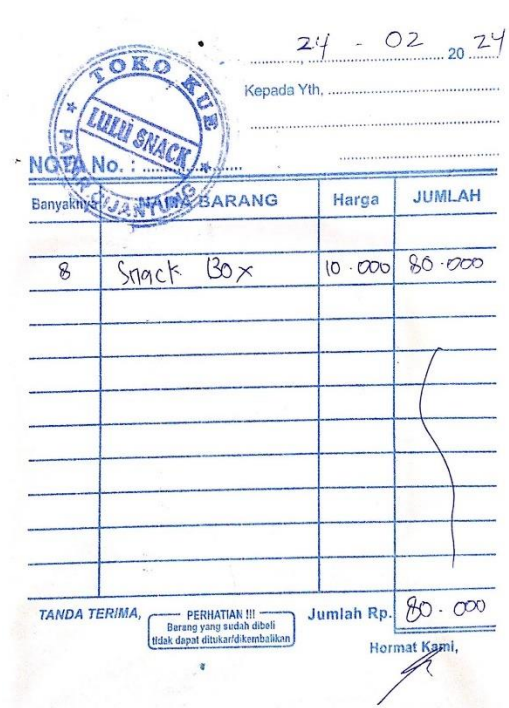 24 - 02 20 24
TOKO KUE
LULU SNACK
PASAR CIJANTUNG
Kepada Yth,
NOTA No. :
Banyaknya NAMA BARANG Harga JUMLAH
8 Snack Box 10.000 80.000
TANDA TERIMA, PERHATIAN !!! Jumlah Rp. 80.000
Barang yang sudah dibeli
tidak dapat ditukar/dikembalikan
Hormat Kami,